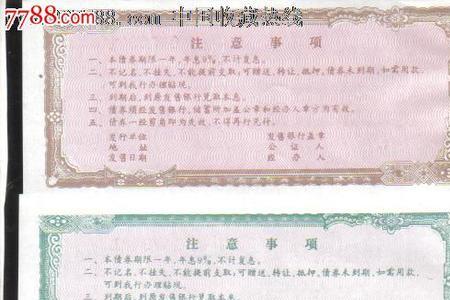 7788.com 中国收藏热线
注意事项
一、本债券期限一年,年息9%,不计复息。
二、不记名、不挂失,不能提前支取,可赠送、转让、抵押,债券未到期,如需用款,
可到我行办理贴现。
三、到期后,到原发售银行兑取本息。
四、债券须经发售银行、储蓄所加盖公章和经办人章方为有效。
五、债券一经剪角即为失效,不得再行兑付。
发行单位 发售银行盖章
地址 公证人
发售日期 经办人
注意事项
一、本债券期限一年,年息9%,不计复息。
二、不记名、不挂失,不能提前支取,可赠送、转让、抵押,债券未到期,如需用款,
可到我行办理贴现。
三、到期后,到原发售银行兑取本息。